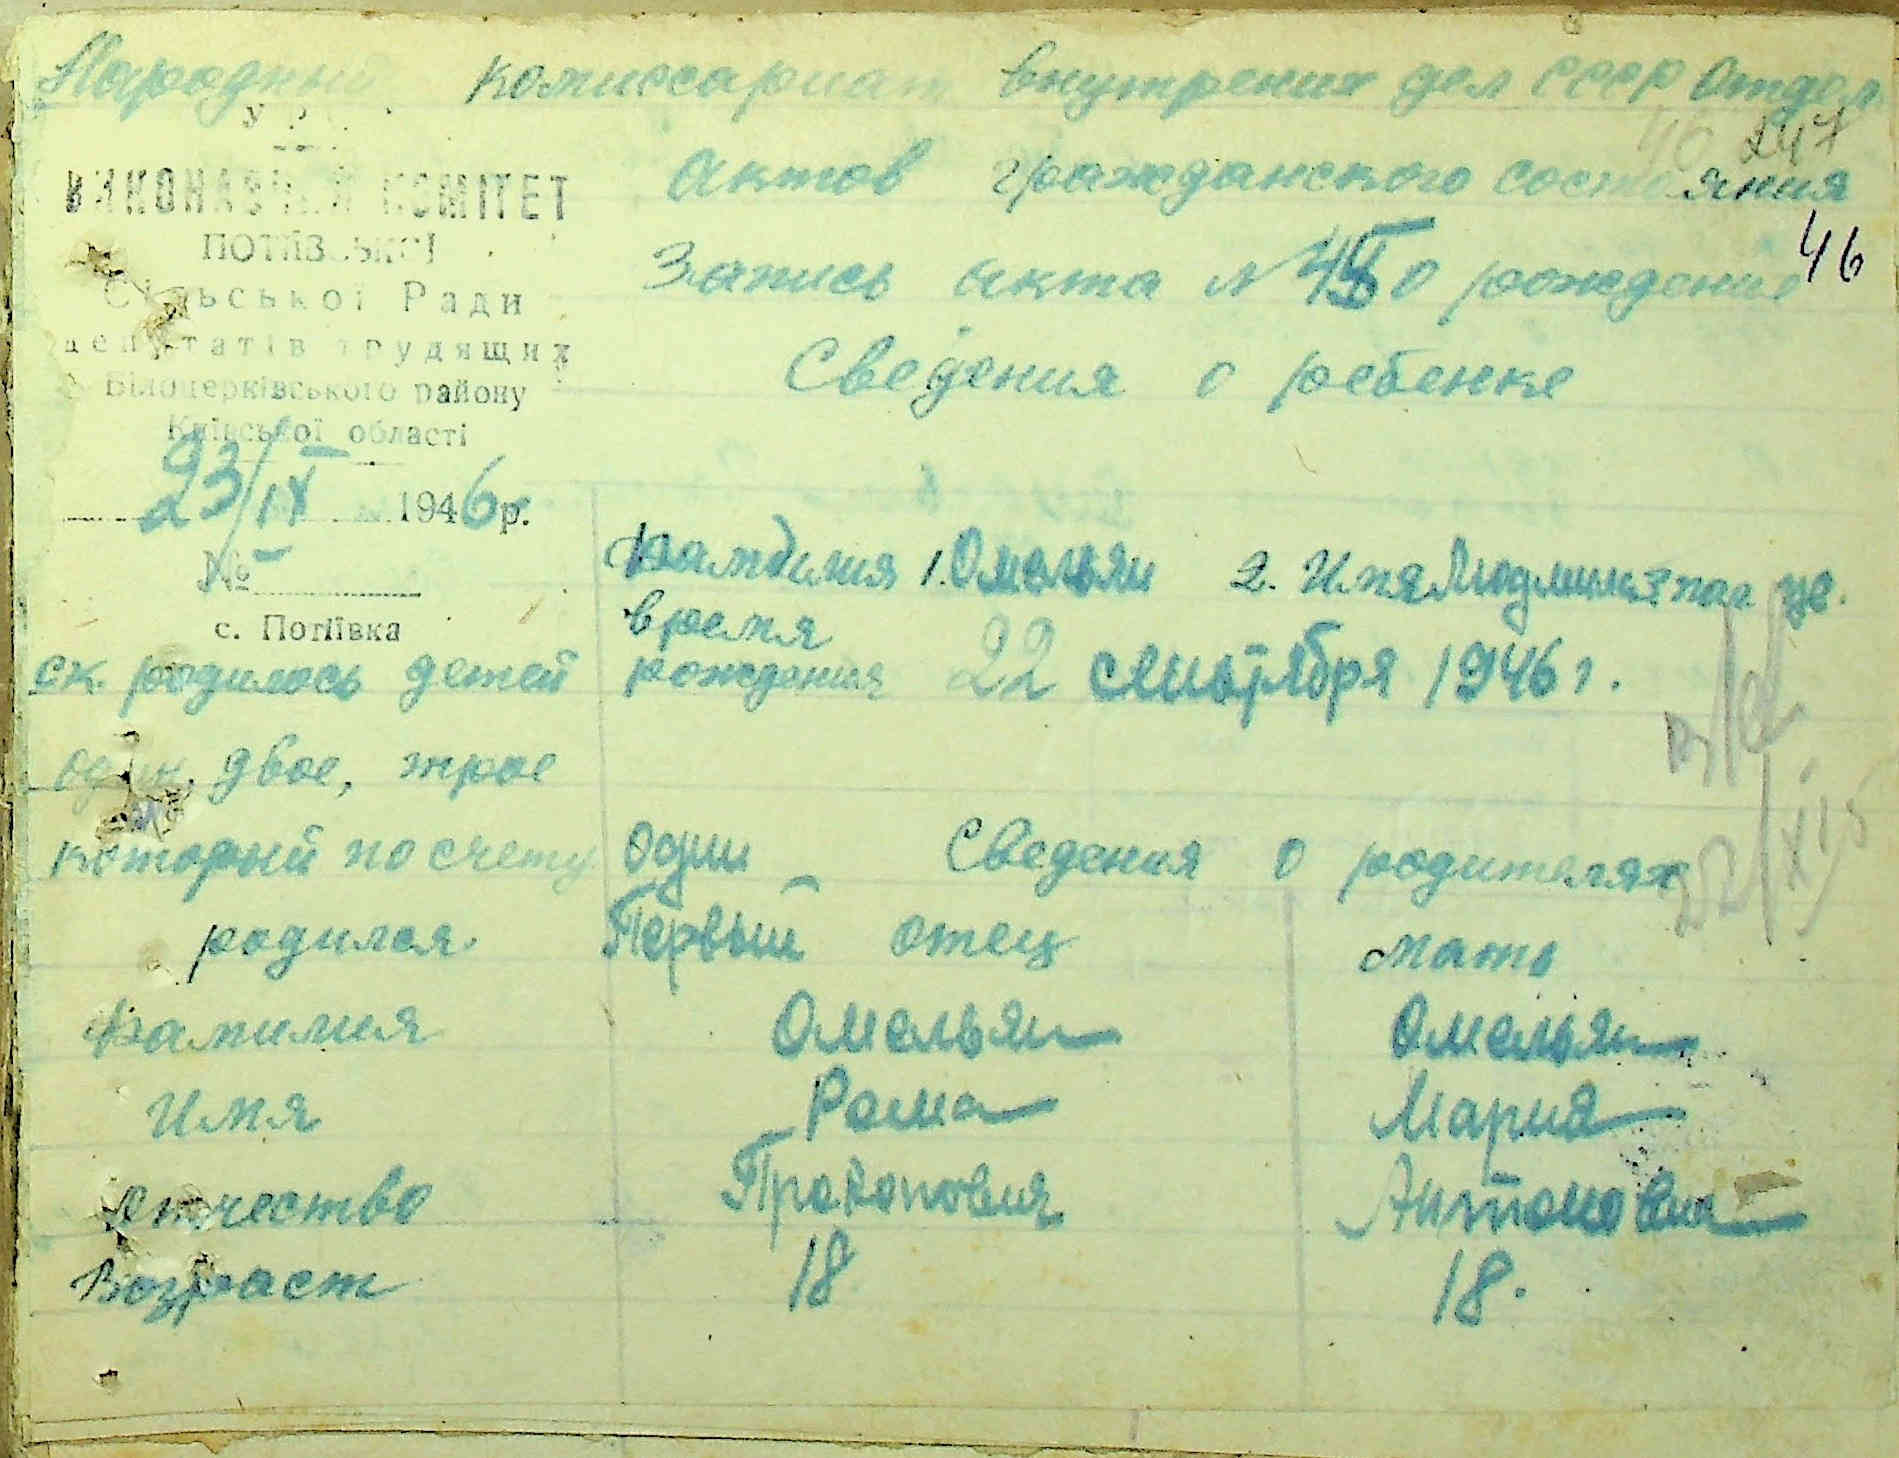 Народный комиссариат внутрених дел СССР Отдел
247
актов гражданского состояния
ВИКОНАВЧИЙ КОМІТЕТ
ПОТІЇВСЬКОЇ
Сільської Ради
депутатів трудящих
Білоцерківського району
Київської області
Запись акта № о рождении
46
Сведения о ребенке
23/IX 1946 р.
№
с. Потіївка
Фамилия 1. Омельян 2. Имя Людмила пол же.
время
рождения 22 сентября 1946 г.
ск. родилось детей
один, двое, трое
который по счету один Сведения о родителях
родился Первый отец мать
Фамилия Омельян Омельян
Имя Рома Мария
Отчество Прокоповия Антоновна
Возраст 18 18.